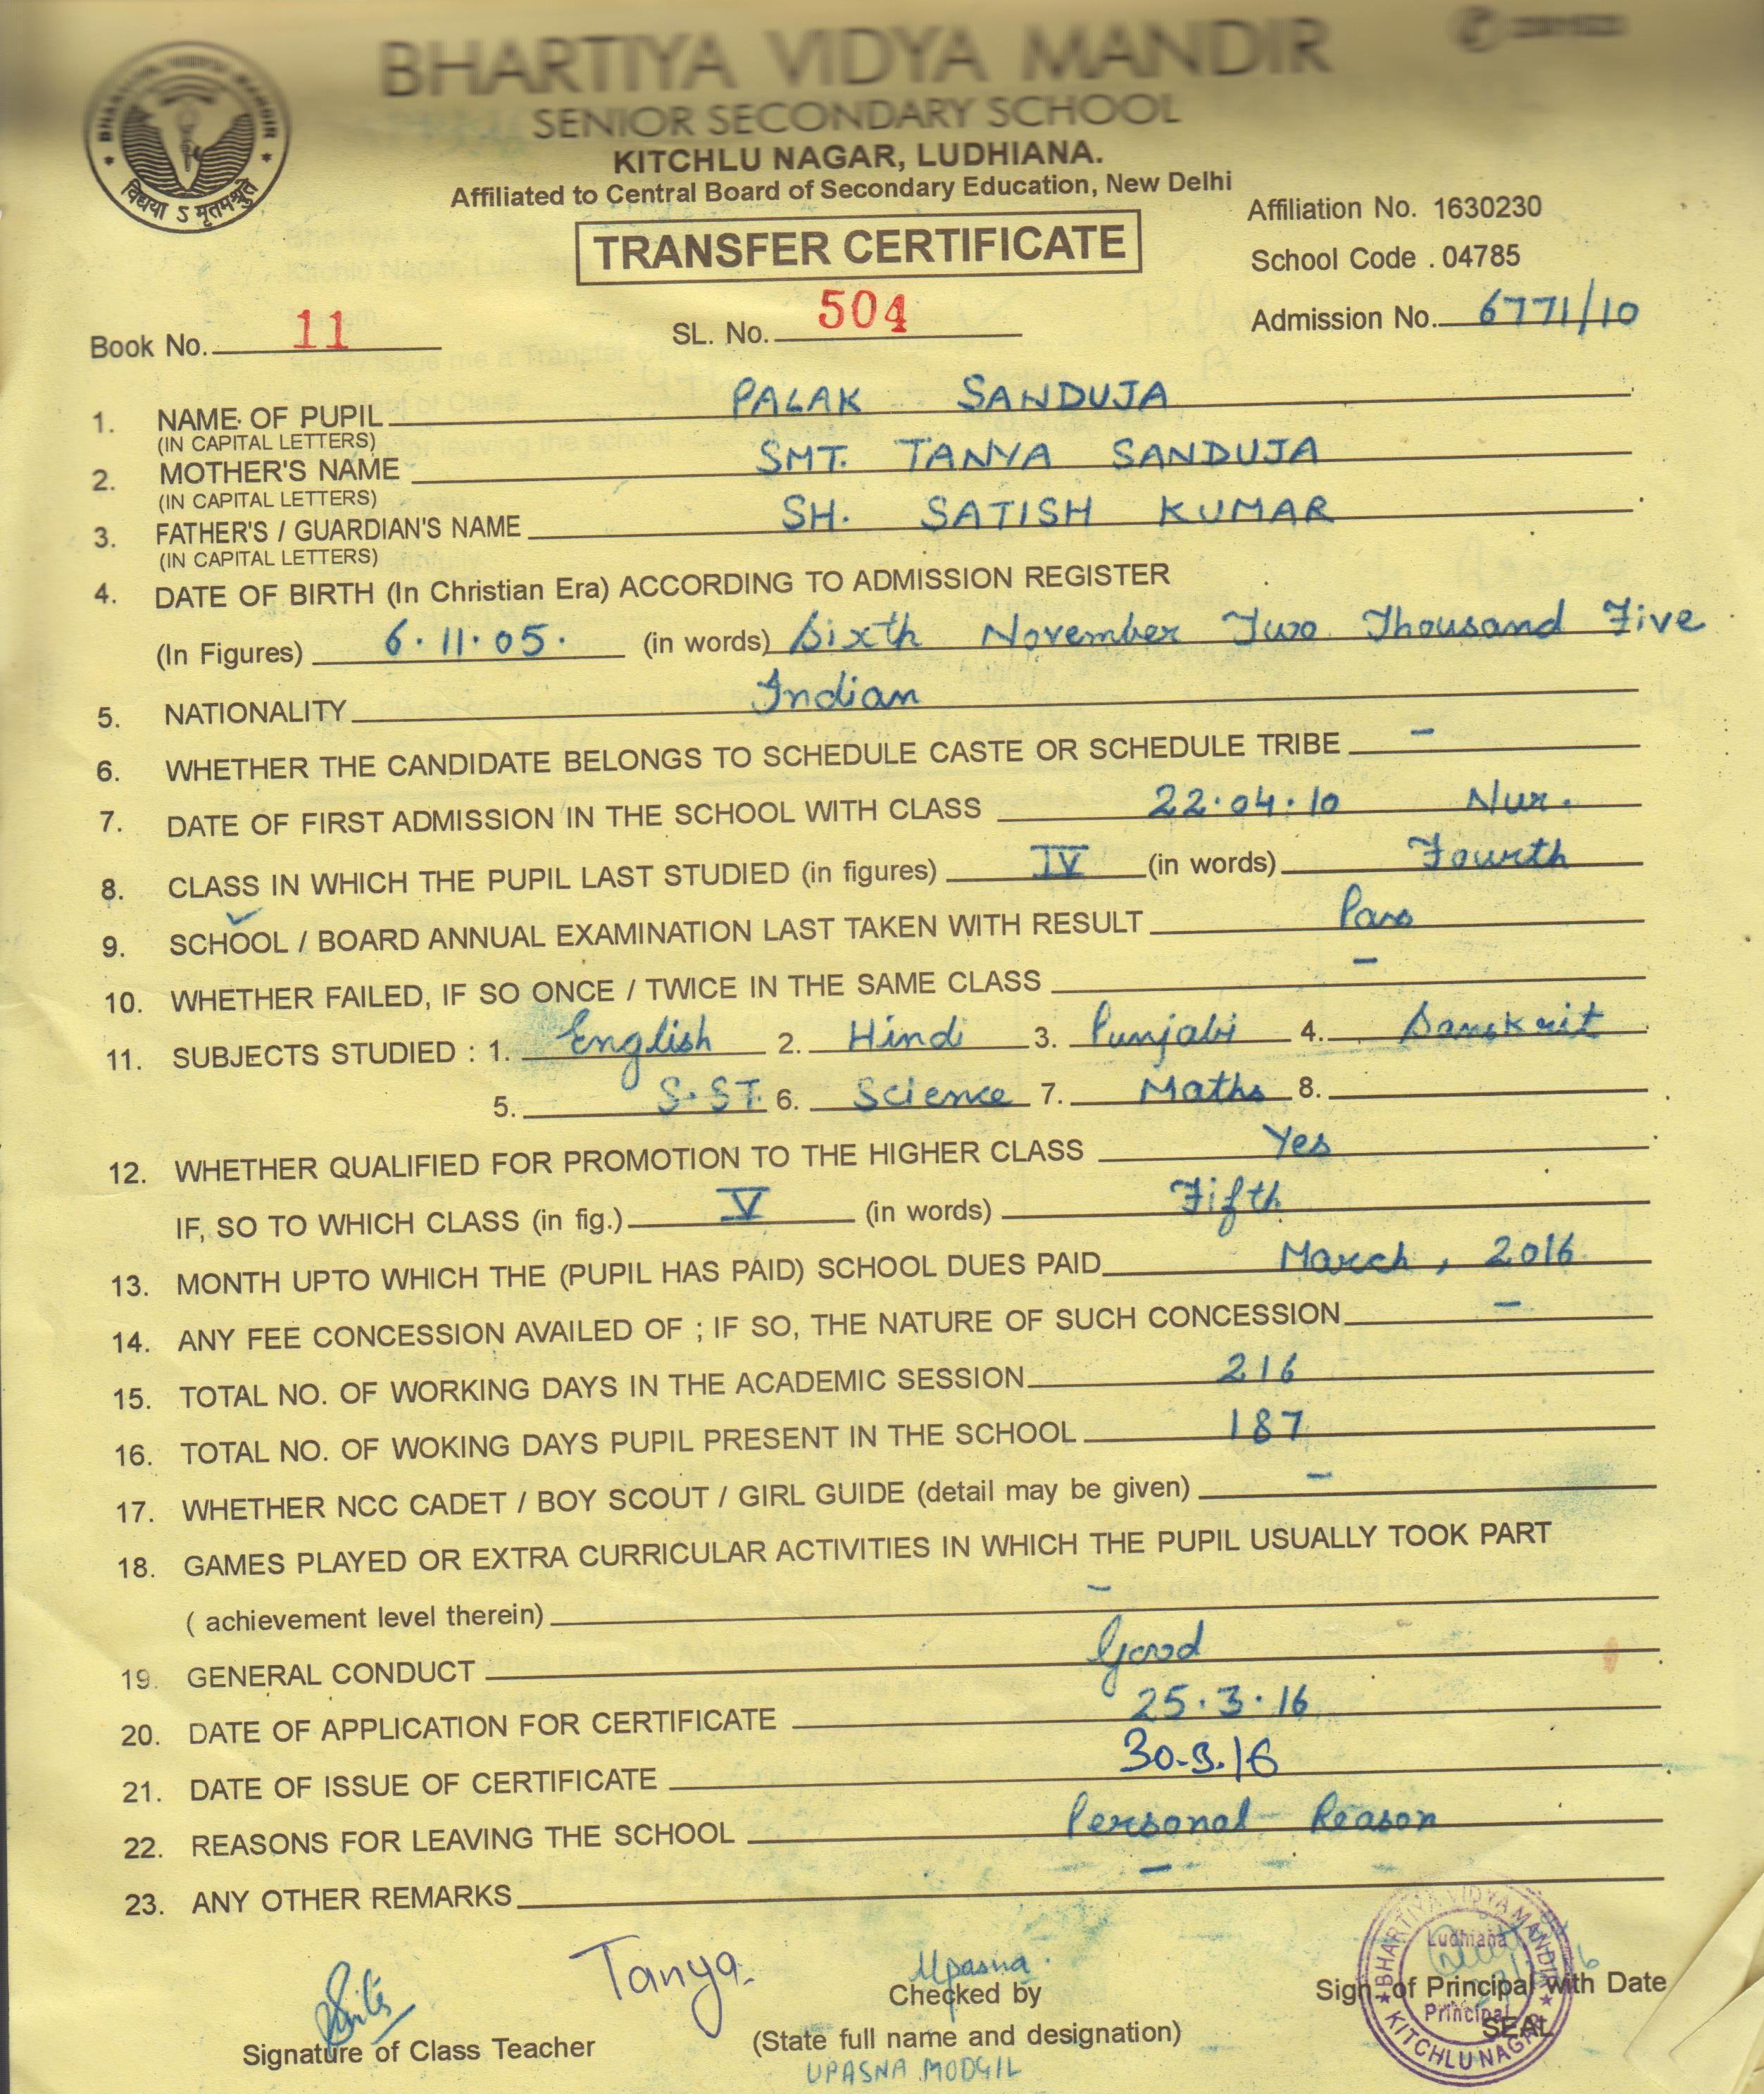 BHARTIYA VIDYA MANDIR
SENIOR SECONDARY SCHOOL
KITCHLU NAGAR, LUDHIANA.
Affiliated to Central Board of Secondary Education, New Delhi
BHARTIYA VIDYA MANDIR
विद्यया ऽ मृतमश्नुते
TRANSFER CERTIFICATE
Affiliation No. 1630230
School Code . 04785
Book No. 11 SL. No. 504 Admission No. 6771/10
1. NAME OF PUPIL PALAK SANDUJA
(IN CAPITAL LETTERS)
2. MOTHER'S NAME SMT. TANYA SANDUJA
(IN CAPITAL LETTERS)
3. FATHER'S / GUARDIAN'S NAME SH. SATISH KUMAR
(IN CAPITAL LETTERS)
4. DATE OF BIRTH (In Christian Era) ACCORDING TO ADMISSION REGISTER
(In Figures) 6.11.05. (in words) Sixth November Two Thousand Five
5. NATIONALITY Indian
6. WHETHER THE CANDIDATE BELONGS TO SCHEDULE CASTE OR SCHEDULE TRIBE –
7. DATE OF FIRST ADMISSION IN THE SCHOOL WITH CLASS 22.04.10 Nur.
8. CLASS IN WHICH THE PUPIL LAST STUDIED (in figures) IV (in words) Fourth
9. SCHOOL / BOARD ANNUAL EXAMINATION LAST TAKEN WITH RESULT Pass
10. WHETHER FAILED, IF SO ONCE / TWICE IN THE SAME CLASS –
11. SUBJECTS STUDIED : 1. English 2. Hindi 3. Punjabi 4. Sanskrit
5. S.ST. 6. Science 7. Maths 8.
12. WHETHER QUALIFIED FOR PROMOTION TO THE HIGHER CLASS Yes
IF, SO TO WHICH CLASS (in fig.) V (in words) Fifth
13. MONTH UPTO WHICH THE (PUPIL HAS PAID) SCHOOL DUES PAID March, 2016
14. ANY FEE CONCESSION AVAILED OF ; IF SO, THE NATURE OF SUCH CONCESSION –
15. TOTAL NO. OF WORKING DAYS IN THE ACADEMIC SESSION 216
16. TOTAL NO. OF WOKING DAYS PUPIL PRESENT IN THE SCHOOL 187
17. WHETHER NCC CADET / BOY SCOUT / GIRL GUIDE (detail may be given) –
18. GAMES PLAYED OR EXTRA CURRICULAR ACTIVITIES IN WHICH THE PUPIL USUALLY TOOK PART
( achievement level therein) –
19. GENERAL CONDUCT Good
20. DATE OF APPLICATION FOR CERTIFICATE 25.3.16
21. DATE OF ISSUE OF CERTIFICATE 30.3.16
22. REASONS FOR LEAVING THE SCHOOL Personal Reason
23. ANY OTHER REMARKS –
Tanya
Upasna
Signature of Class Teacher
Checked by
(State full name and designation)
UPASNA MODGIL
Sign. of Principal with Date
SEAL
BHARTIYA VIDYA MANDIR
Ludhiana
Principal
KITCHLU NAGAR